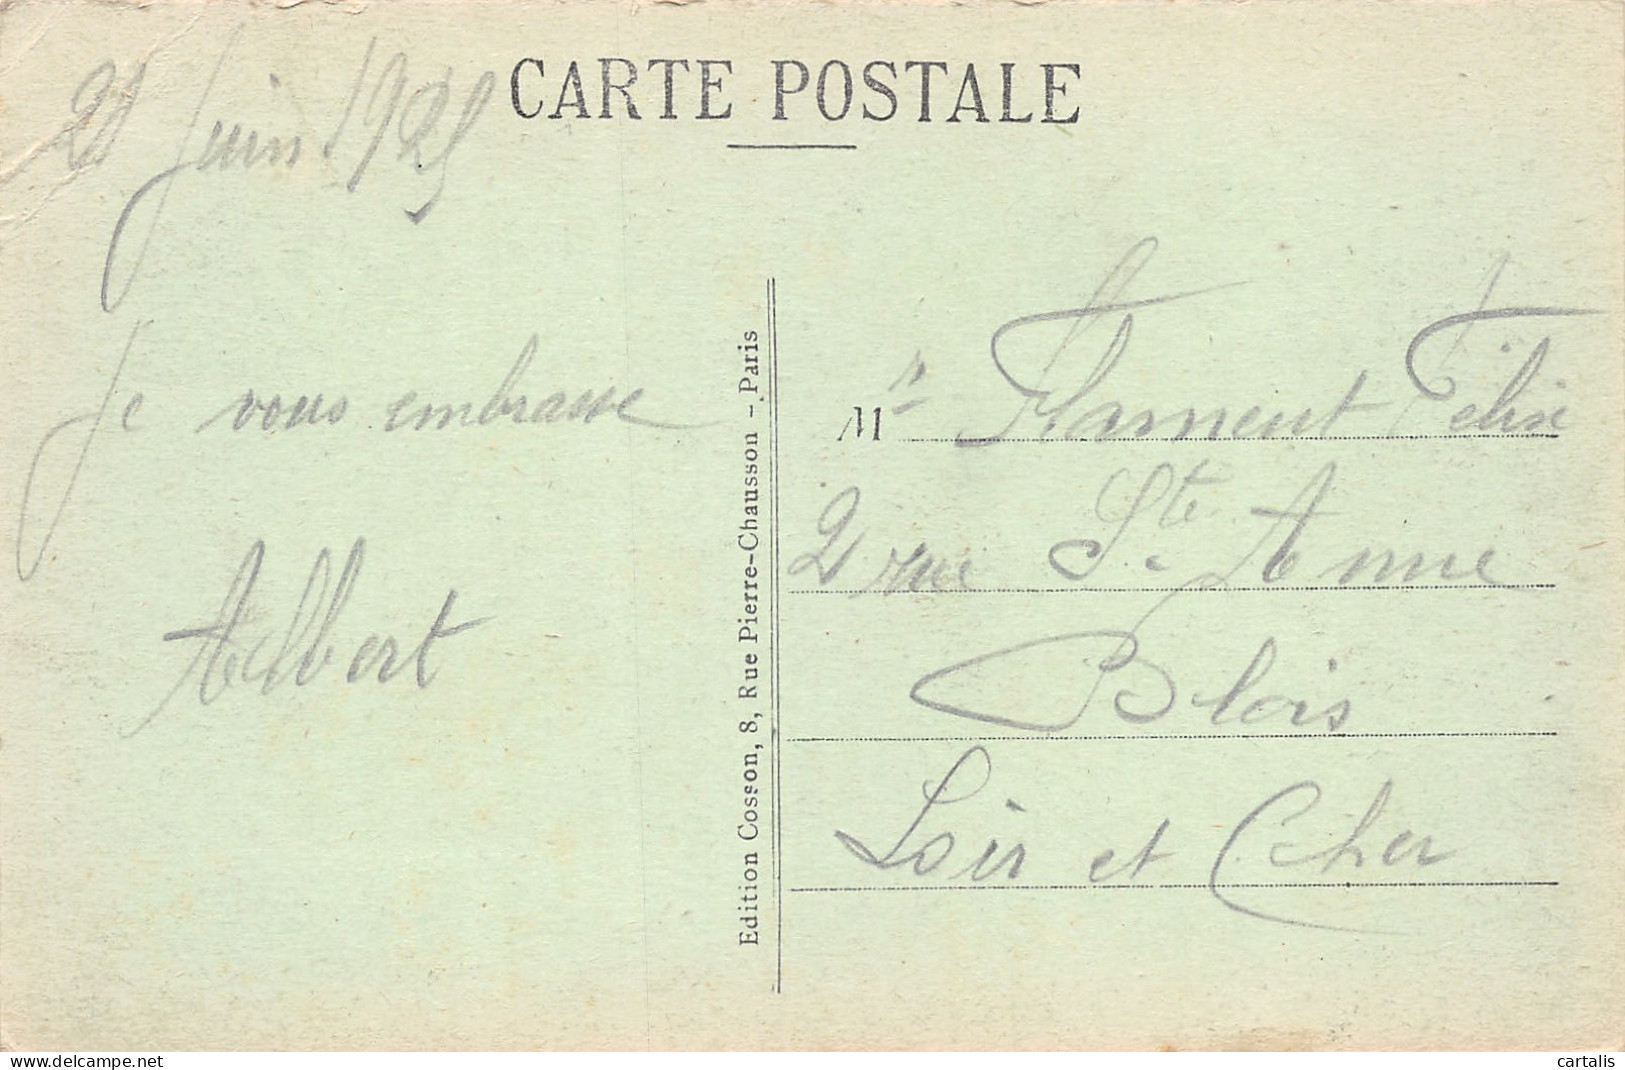 CARTE POSTALE
21 Juin 1925
Je vous embrasse
Albert
Edition Cosson, 8, Rue Pierre-Chausson - Paris
Mr Flament Félix
2 rue Ste Anne
Blois
Loir et Cher
www.delcampe.net
cartalis